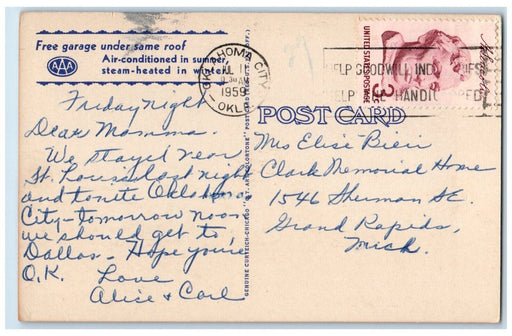 Free garage under same roof
Air-conditioned in summer,
steam-heated in winter.
AAA
Friday night
Dear Mamma.
We stayed near
St. Louis last night
and tonite Oklahoma
City - tomorrow noon
we should get to
Dallas - Hope you're
O.K. Love
Alice & Carl
GENUINE CURTEICH-CHICAGO
OKLAHOMA CITY
1959
OKLA
HELP GOODWILL IND
HELP HANDI
UNITED STATES POSTAGE
3¢
POST CARD
Mrs Elise Bieri
Clark Memorial Home
1546 Sherman SE.
Grand Rapids,
Mich.